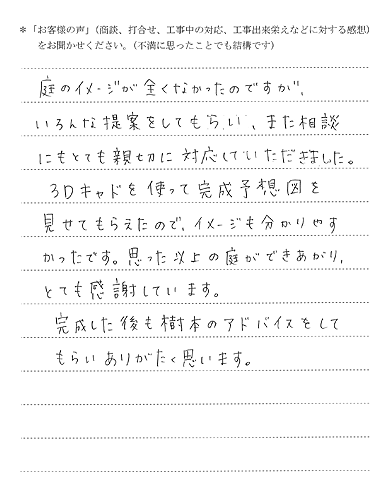 ＊「お客様の声」（商談、打合せ、工事中の対応、工事出来栄えなどに対する感想）
をお聞かせください。（不満に思ったことでも結構です）
庭のイメージが全くなかったのですが、
いろんな提案をしてもらい、また相談
にもとても親切に対応していただきました。
3Dキャドを使って完成予想図を
見せてもらえたので、イメージも分かりやす
かったです。思った以上の庭ができあがり、
とても感謝しています。
完成した後も樹木のアドバイスをして
もらいありがたく思います。